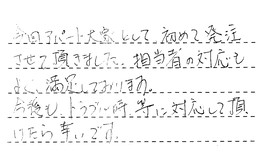 今回アパート大家として、初めて発注
させて頂きました。担当者の対応も
よく、満足しております。
今後も、トラブル時等に対応して頂
けたら幸いです。